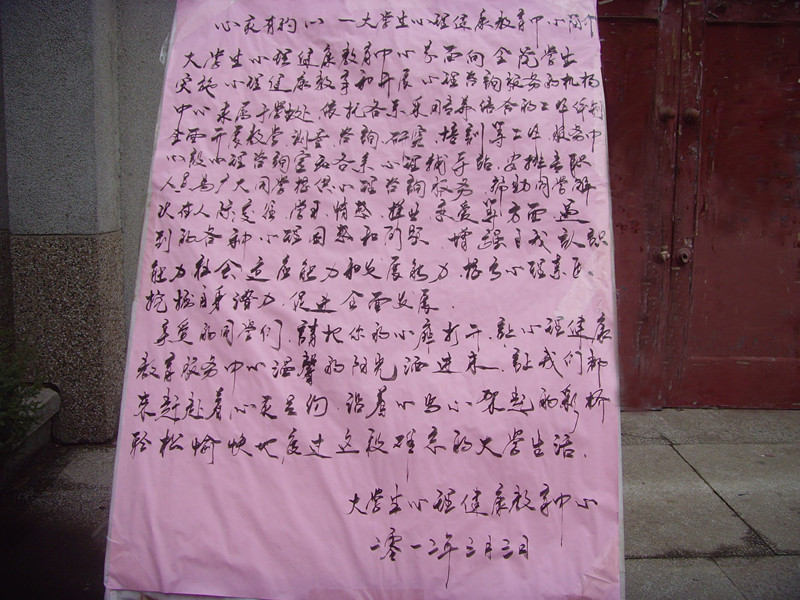 心灵有约 心 一大学生心理健康教育中心简介
大学生心理健康教育中心是面向全院学生
实施心理健康教育和开展心理咨询服务的机构
中心隶属于学生处、依托各系采用专兼结合的工作体制
全面开展教学、测查、咨询、研究、培训等工作、服务中
心设心理咨询室和各系心理辅导站、安排专职
人员为广大同学提供心理咨询服务、帮助同学解
决在人际交往、学习、情感、择业、恋爱等方面遇
到的各种心理困惑和问题、增强自我认识
能力社会适应能力和发展能力、提高心理素质、
挖掘自身潜力、促进全面发展.
亲爱的同学们、請把你的心扉打开、讓心理健康
教育服务中心温馨的阳光洒进来、讓我们都
来赶赴着心灵之约、沿着心与心架起的彩桥
轻松愉快地度过这段难忘的大学生活.
大学生心理健康教育中心
二零一二年三月三日